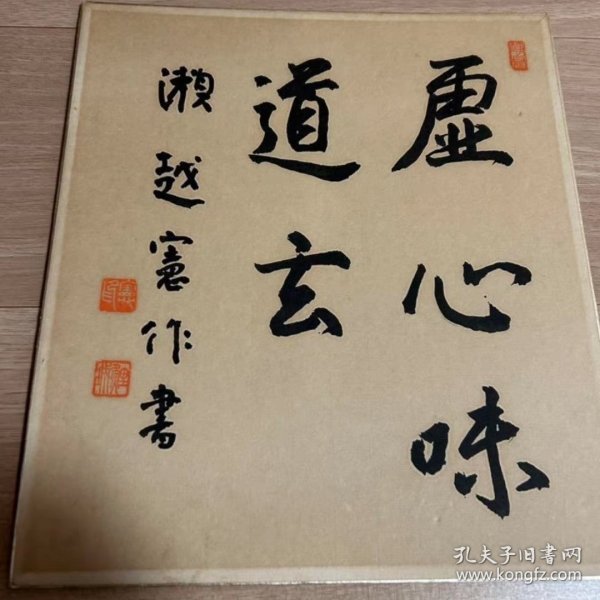 虚心味
道玄
瀬越憲作書
孔夫子旧书网
www.kongfz.com